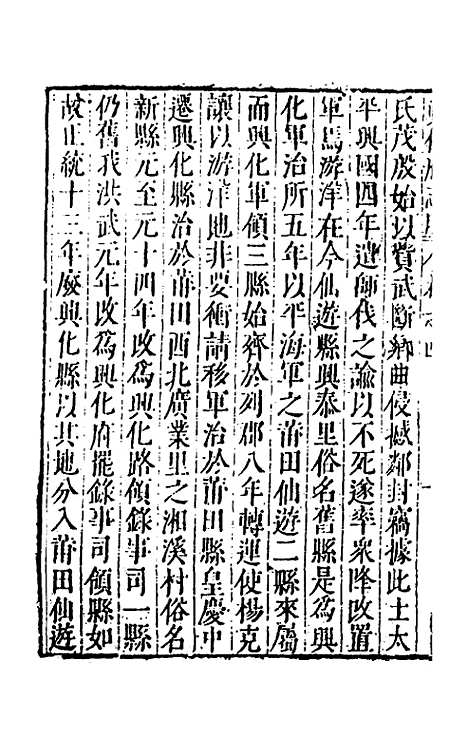 氏茂殷始以貲武斷鄉曲侵撼鄰封竊據此土太
平興國四年遣師伐之諭以不死遂率衆降改置
軍爲游洋在今仙遊縣興泰里俗名舊縣是爲興
化軍治所五年以平海軍之莆田仙遊二縣來屬
而興化軍領三縣始齊於列郡八年轉運使楊克
讓以游洋地非要衝請移軍治於莆田縣皇慶中
遷興化縣治於莆田西北廣業里之湘溪村俗名
新縣元至元十四年改爲興化路領錄事司一縣
仍舊我洪武元年改爲興化府罷錄事司領縣如
故正統十三年廢興化縣以其地分入莆田仙遊